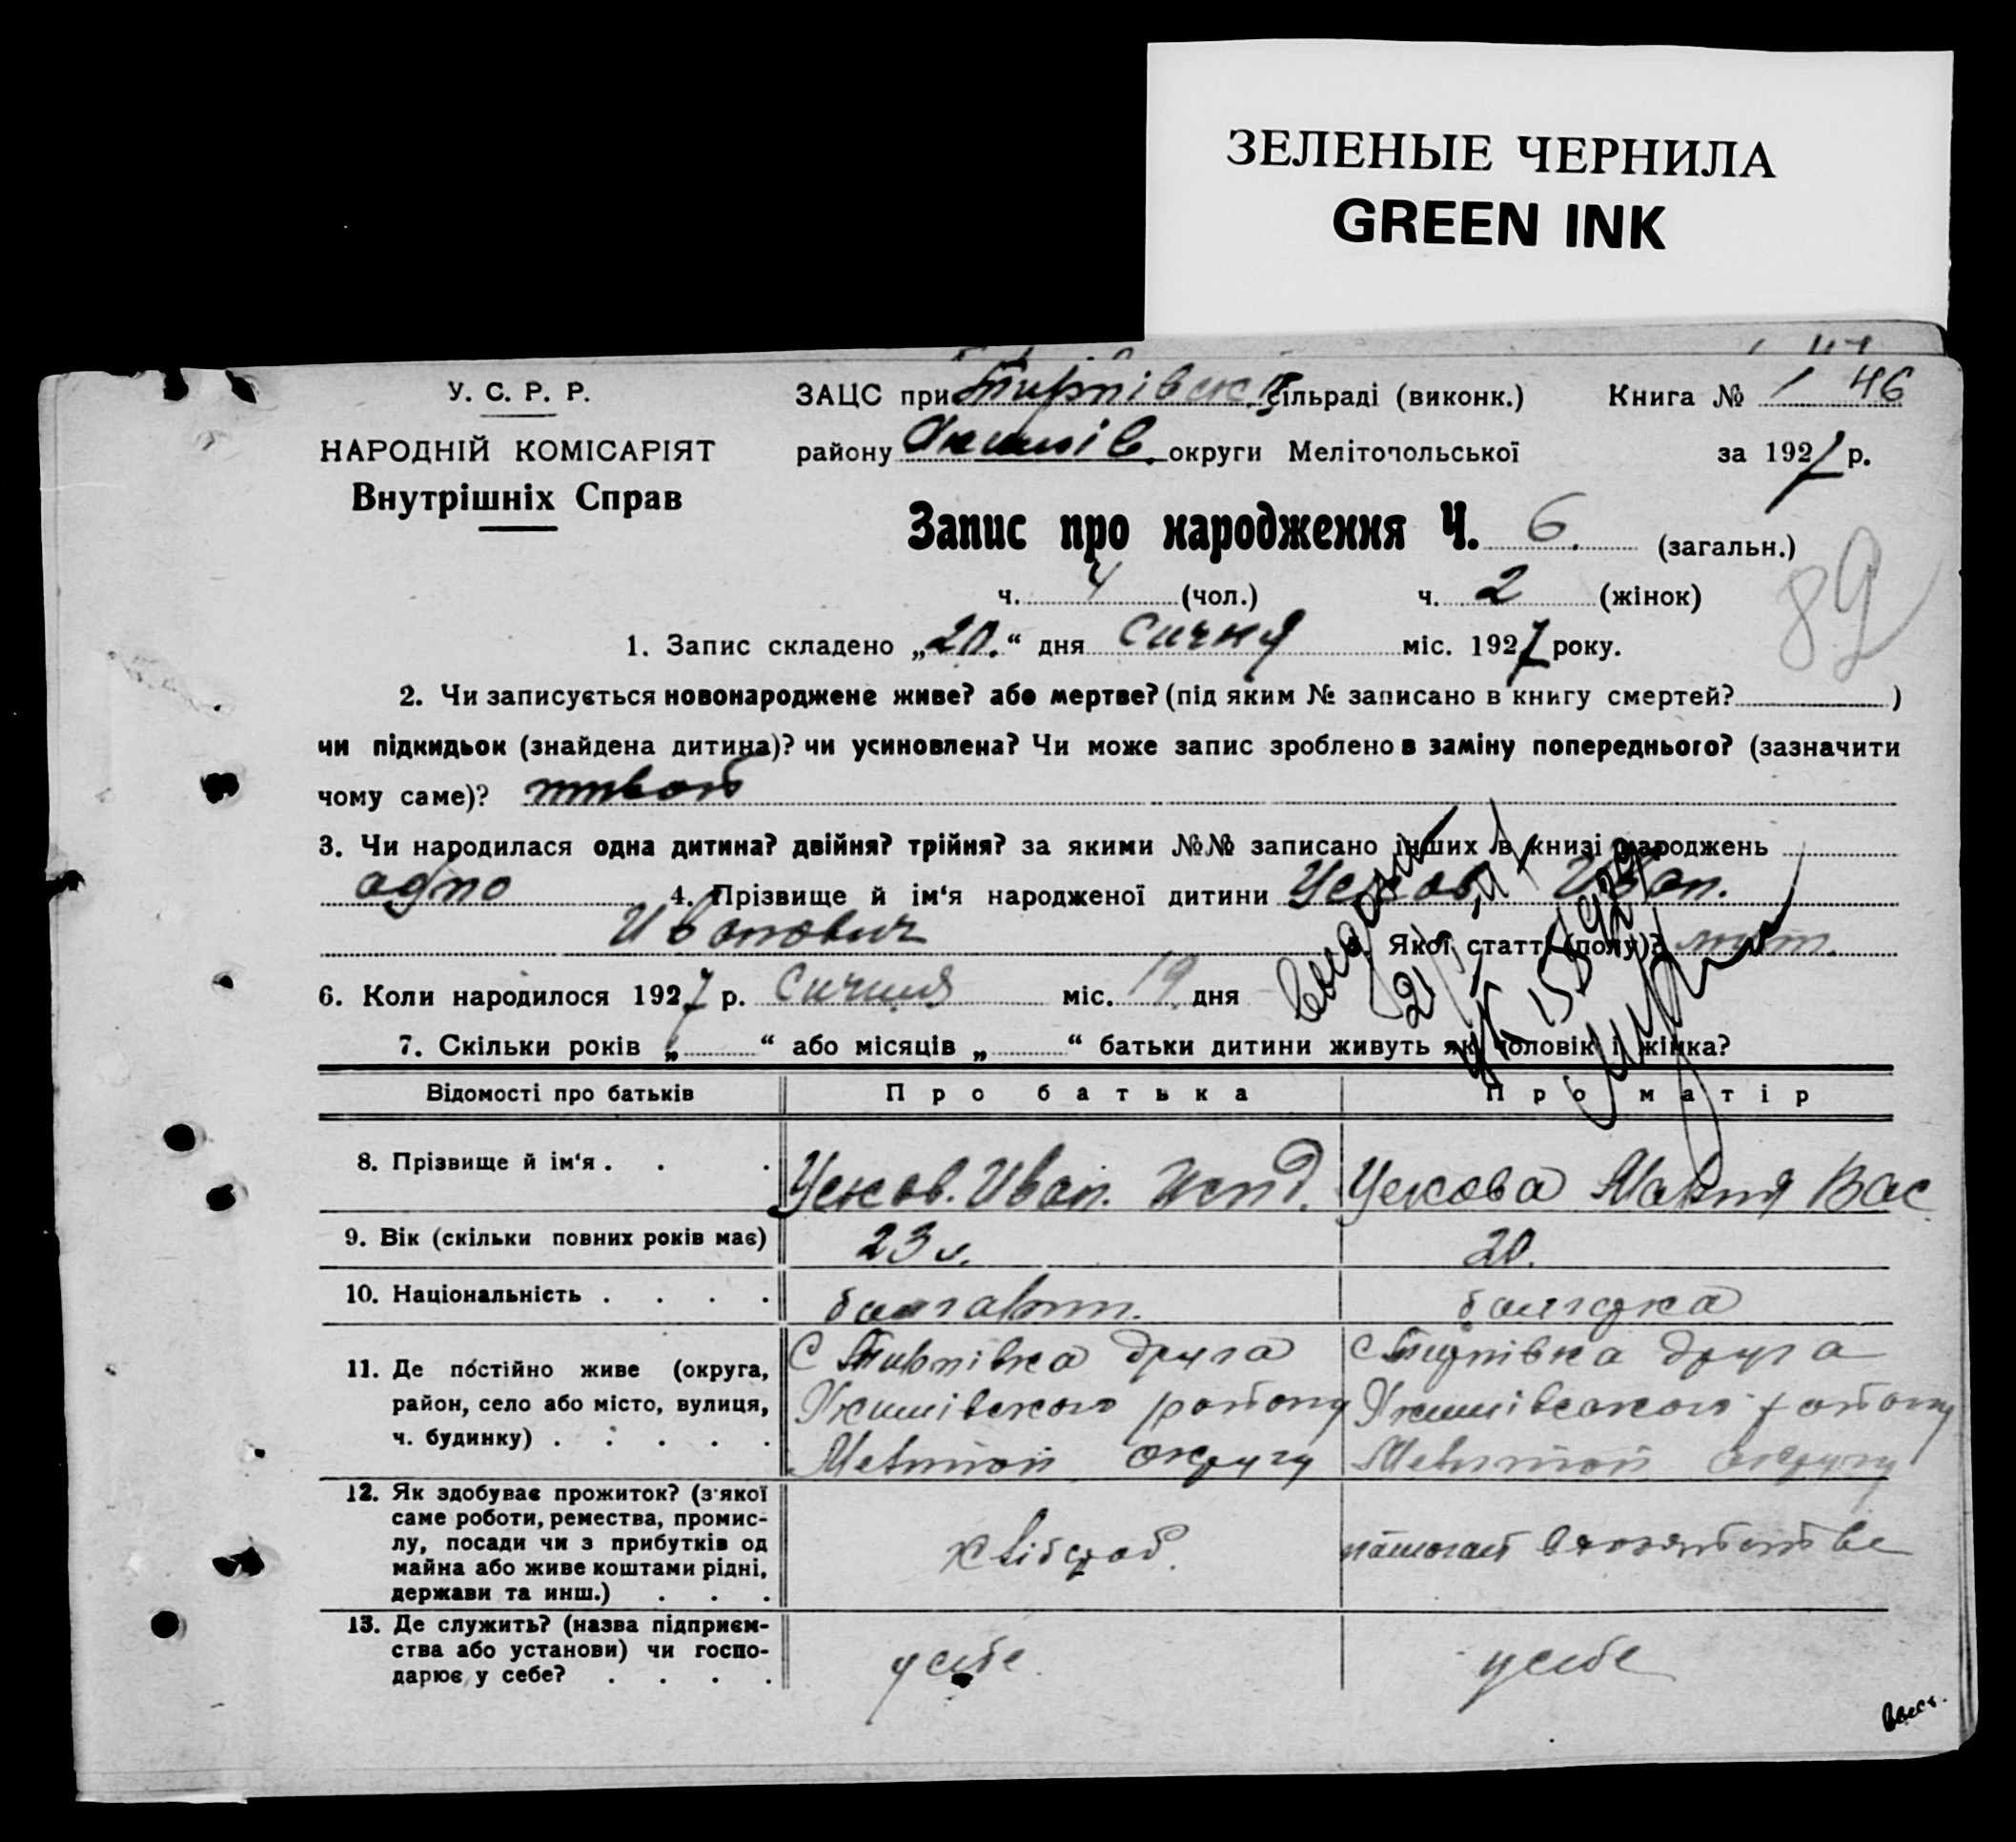 ЗЕЛЕНЫЕ ЧЕРНИЛА
GREEN INK
У. С. Р. Р.
НАРОДНІЙ КОМІСАРІЯТ
Внутрішніх Справ
ЗАЦС при Тирнівск. сільраді (виконк.)
Книга № 1 46
району Якимів. округи Мелітопольської
за 1927 р.
Запис про народження Ч. 6. (загальн.)
ч. 4 (чол.) ч. 2 (жінок)
89
1. Запис складено „20.“ дня сичня міс. 1927 року.
2. Чи записується новонароджене живе? або мертве? (під яким № записано в книгу смертей? )
чи підкидьок (знайдена дитина)? чи усиновлена? Чи може запис зроблено в заміну попереднього? (зазначити
чому саме)? живой
3. Чи народилася одна дитина? двійня? трійня? за якими №№ записано інших в книзі народжень
одно 4. Прізвище й ім'я народженої дитини Усков Иван.
Иванович 5. Якої статті (полу)?
6. Коли народилося 1927 р. Сичня міс. 19 дня
7. Скільки років „ “ або місяців „ “ батьки дитини живуть як чоловік і жінка?
Відомості про батьків Про батька Про матір
8. Прізвище й ім'я . . . Усков. Иван. Ускова Мария Вас
9. Вік (скільки повних років має) 23 20.
10. Національність . . . . болгарин. болгарка
11. Де постійно живе (округа, район, село або місто, вулиця, ч. будинку) . . . . .
С Тирнівка друга
Якимівского району
Мелітоп округи
С Тирнівка друга
Якимівского району
Мелітоп округи
12. Як здобуває прожиток? (з'якої саме роботи, ремества, промислу, посади чи з прибутків од майна або живе коштами рідні, держави та инш.) . . .
хлібороб.
13. Де служить? (назва підприємства або установи) чи господарює у себе? . . . .
у себе
у себе